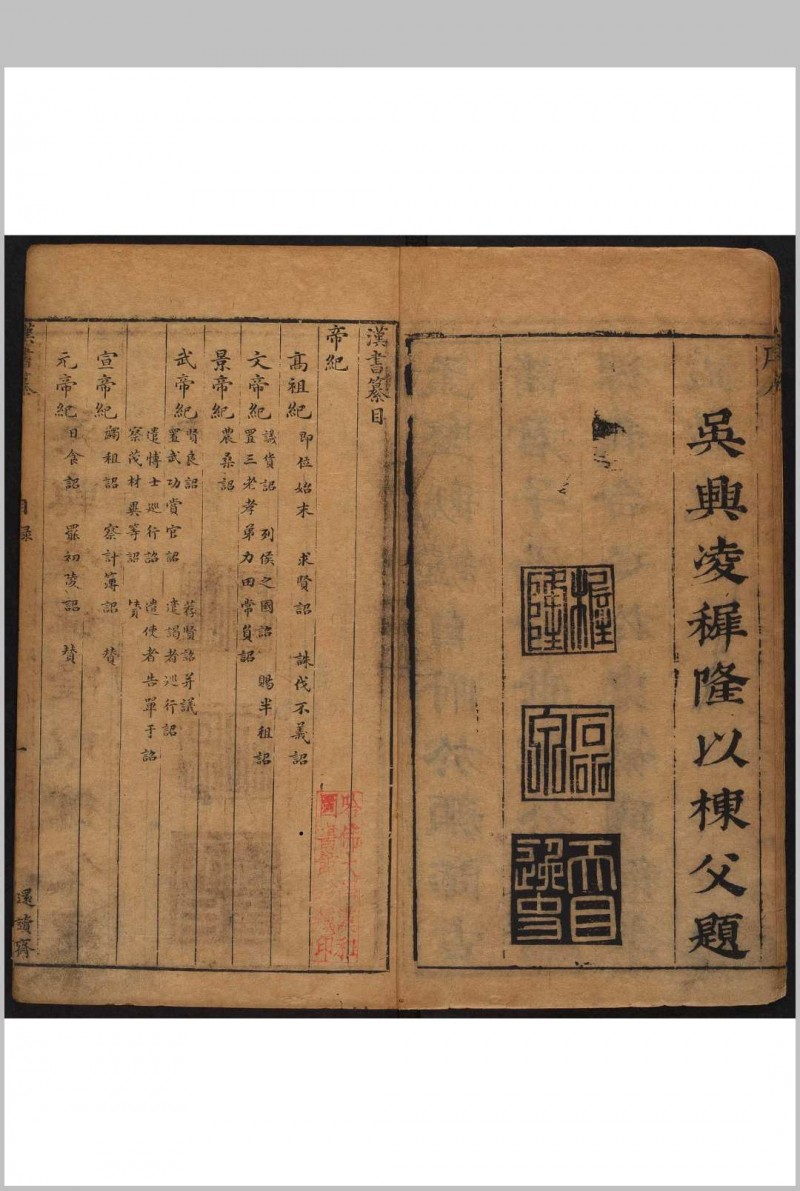 吳興凌稚隆以棟父題
稚隆
漢書纂目
帝紀
高祖紀 即位始末 求賢詔 誅伐不義詔
文帝紀 議貸詔 列侯之國詔 賜半租詔
置三老孝弟力田常員詔
景帝紀 農桑詔
武帝紀 賢良詔 舉賢詔并議
置武功賞官詔 遣謁者巡行詔
遣博士巡行詔 遣使者告單于詔
察茂材異等詔 贊
宣帝紀 蠲租詔 察計簿詔 贊
元帝紀 日食詔 罷初陵詔 贊
漢書纂
目錄
一
還讀齋